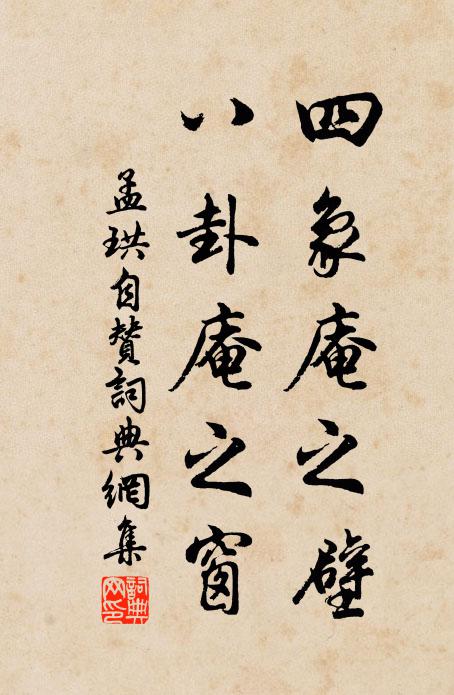 四象庵之壁
八卦庵之窗
孟珙自赞詞典網集
詞典網印